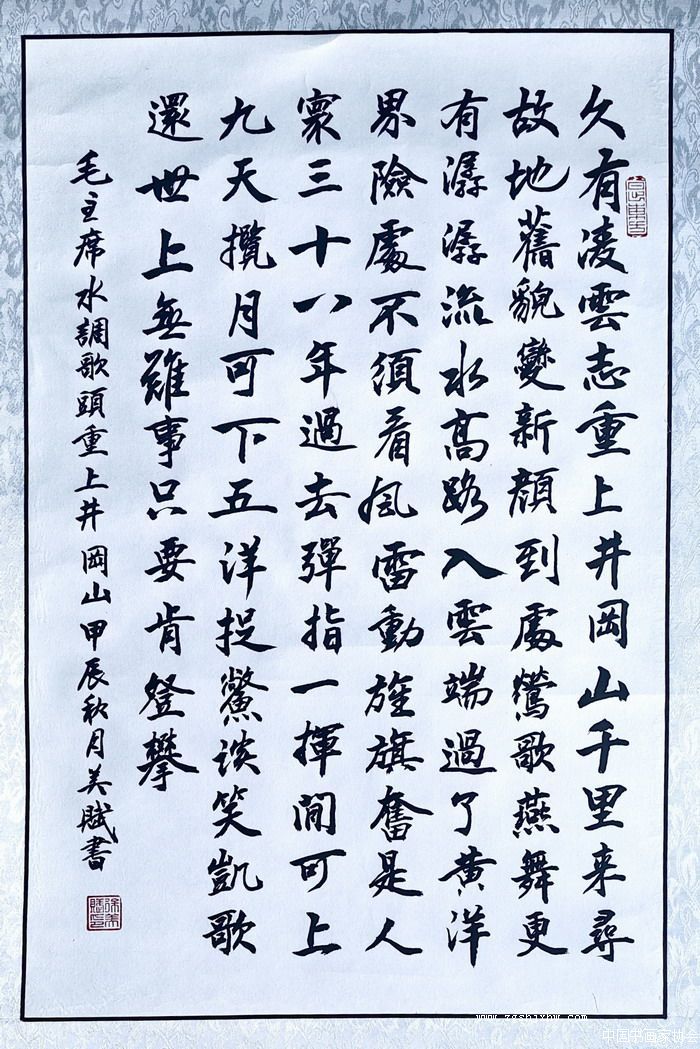 久有凌雲志重上井岡山千里来尋
故地舊貌變新顔到處鶯歌燕舞更
有潺潺流水髙路入雲端過了黄洋
界險處不須看風雷動旌旗奮是人
寰三十八年過去彈指一揮間可上
九天攬月可下五洋捉鱉談笑凱歌
還世上無難事只要肯登攀
毛主席水調歌頭重上井岡山甲辰秋月美賦書
中国书画家村